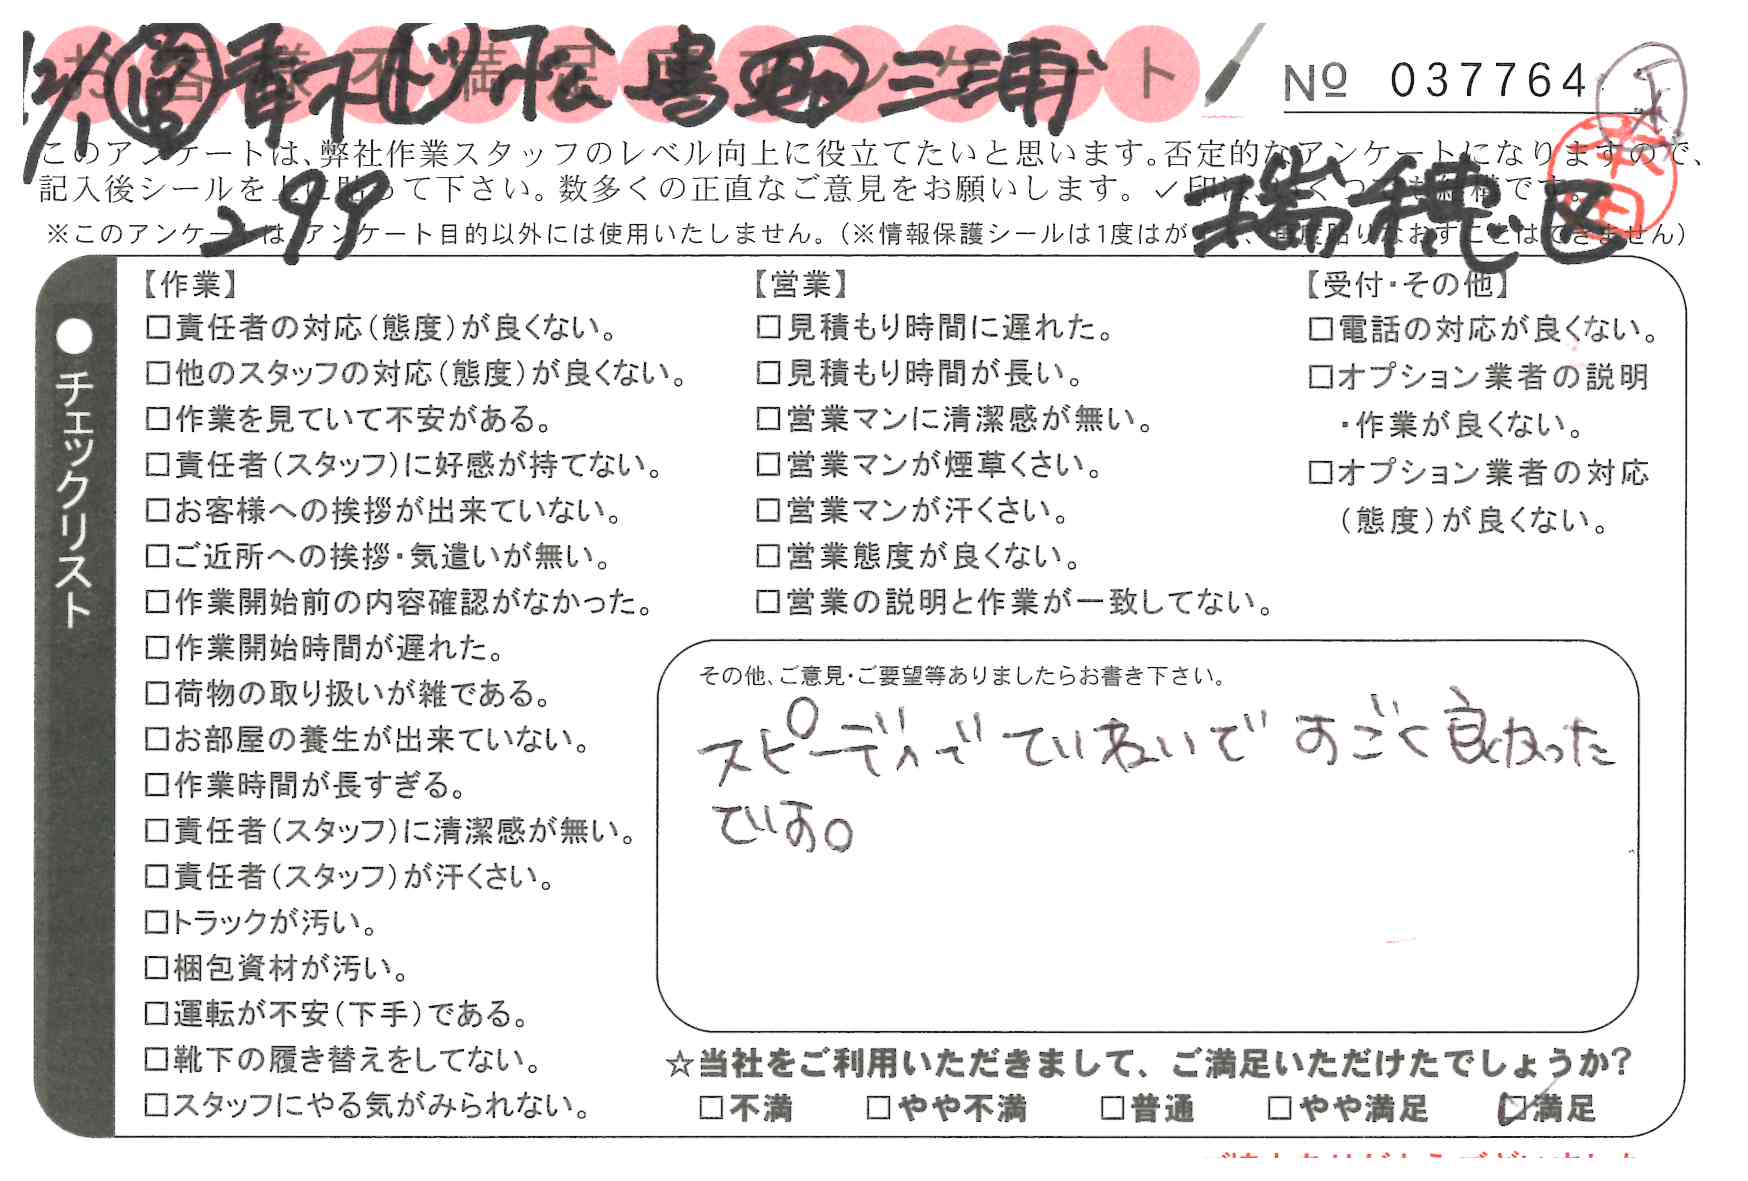 お客様不満足度アンケート
№ 037764
12/1 青木 下松 鳥西 三浦
このアンケートは、弊社作業スタッフのレベル向上に役立てたいと思います。否定的なアンケートになりますので、
記入後シールを上に貼って下さい。数多くの正直なご意見をお願いします。✓印は、いくつでも結構です。
299
瑞穂区
※このアンケートは、アンケート目的以外には使用いたしません。(※情報保護シールは1度はがすと、再度貼りなおすことはできません)
●チェックリスト
【作業】
□責任者の対応(態度)が良くない。
□他のスタッフの対応(態度)が良くない。
□作業を見ていて不安がある。
□責任者(スタッフ)に好感が持てない。
□お客様への挨拶が出来ていない。
□ご近所への挨拶・気遣いが無い。
□作業開始前の内容確認がなかった。
□作業開始時間が遅れた。
□荷物の取り扱いが雑である。
□お部屋の養生が出来ていない。
□作業時間が長すぎる。
□責任者(スタッフ)に清潔感が無い。
□責任者(スタッフ)が汗くさい。
□トラックが汚い。
□梱包資材が汚い。
□運転が不安(下手)である。
□靴下の履き替えをしてない。
□スタッフにやる気がみられない。
【営業】
□見積もり時間に遅れた。
□見積もり時間が長い。
□営業マンに清潔感が無い。
□営業マンが煙草くさい。
□営業マンが汗くさい。
□営業態度が良くない。
□営業の説明と作業が一致してない。
【受付・その他】
□電話の対応が良くない。
□オプション業者の説明
・作業が良くない。
□オプション業者の対応
(態度)が良くない。
その他、ご意見・ご要望等ありましたらお書き下さい。
スピーディで ていねいで すごく良かった
です。
☆当社をご利用いただきまして、ご満足いただけたでしょうか?
□不満 □やや不満 □普通 □やや満足 ☑満足